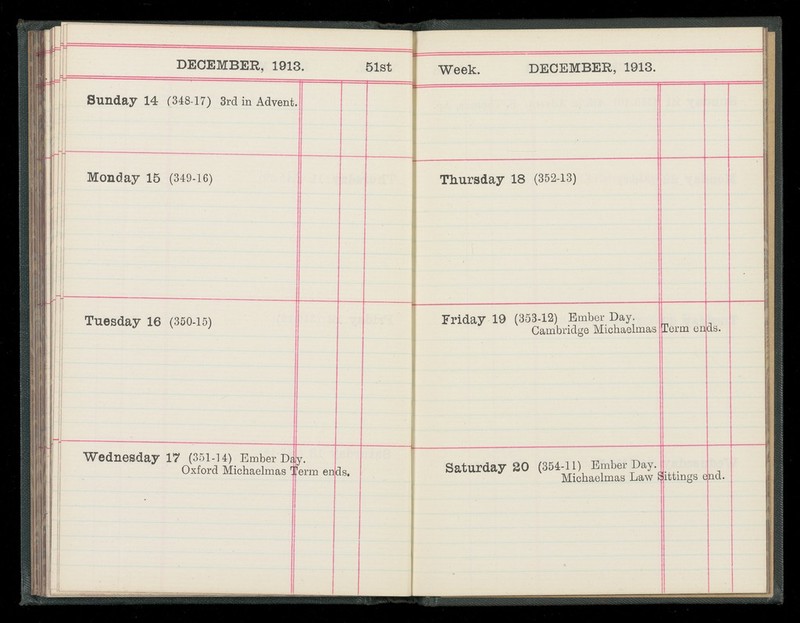 DECEMBER, 1913. 51st
Sunday 14 (348-17) 3rd in Advent.
Monday 15 (349-16)
Tuesday 16 (350-15)
Wednesday 17 (351-14) Ember Day.
Oxford Michaelmas Term ends.
Week. DECEMBER, 1913.
Thursday 18 (352-13)
Friday 19 (353-12) Ember Day.
Cambridge Michaelmas Term ends.
Saturday 20 (354-11) Ember Day.
Michaelmas Law Sittings end.